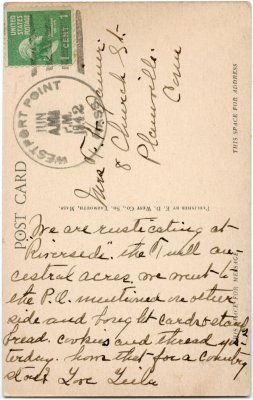 UNITED STATES
POSTAGE
1 CENT 1
WESTPORT POINT
JUN
A.M.
1942
MASS.
Mrs. F.
8 Church St
Plainville
Conn
POST CARD
PUBLISHED BY E. D. WEST CO., SO. YARMOUTH, MASS.
THIS SPACE FOR ADDRESS
We are rusticating at
"Riverside" the Tuell an-
cestral acres, we went to
the P.O. mentioned on other
side and bought cards stamps
bread, cookies and thread yes-
terday. how's that for a country
store? Love Leila